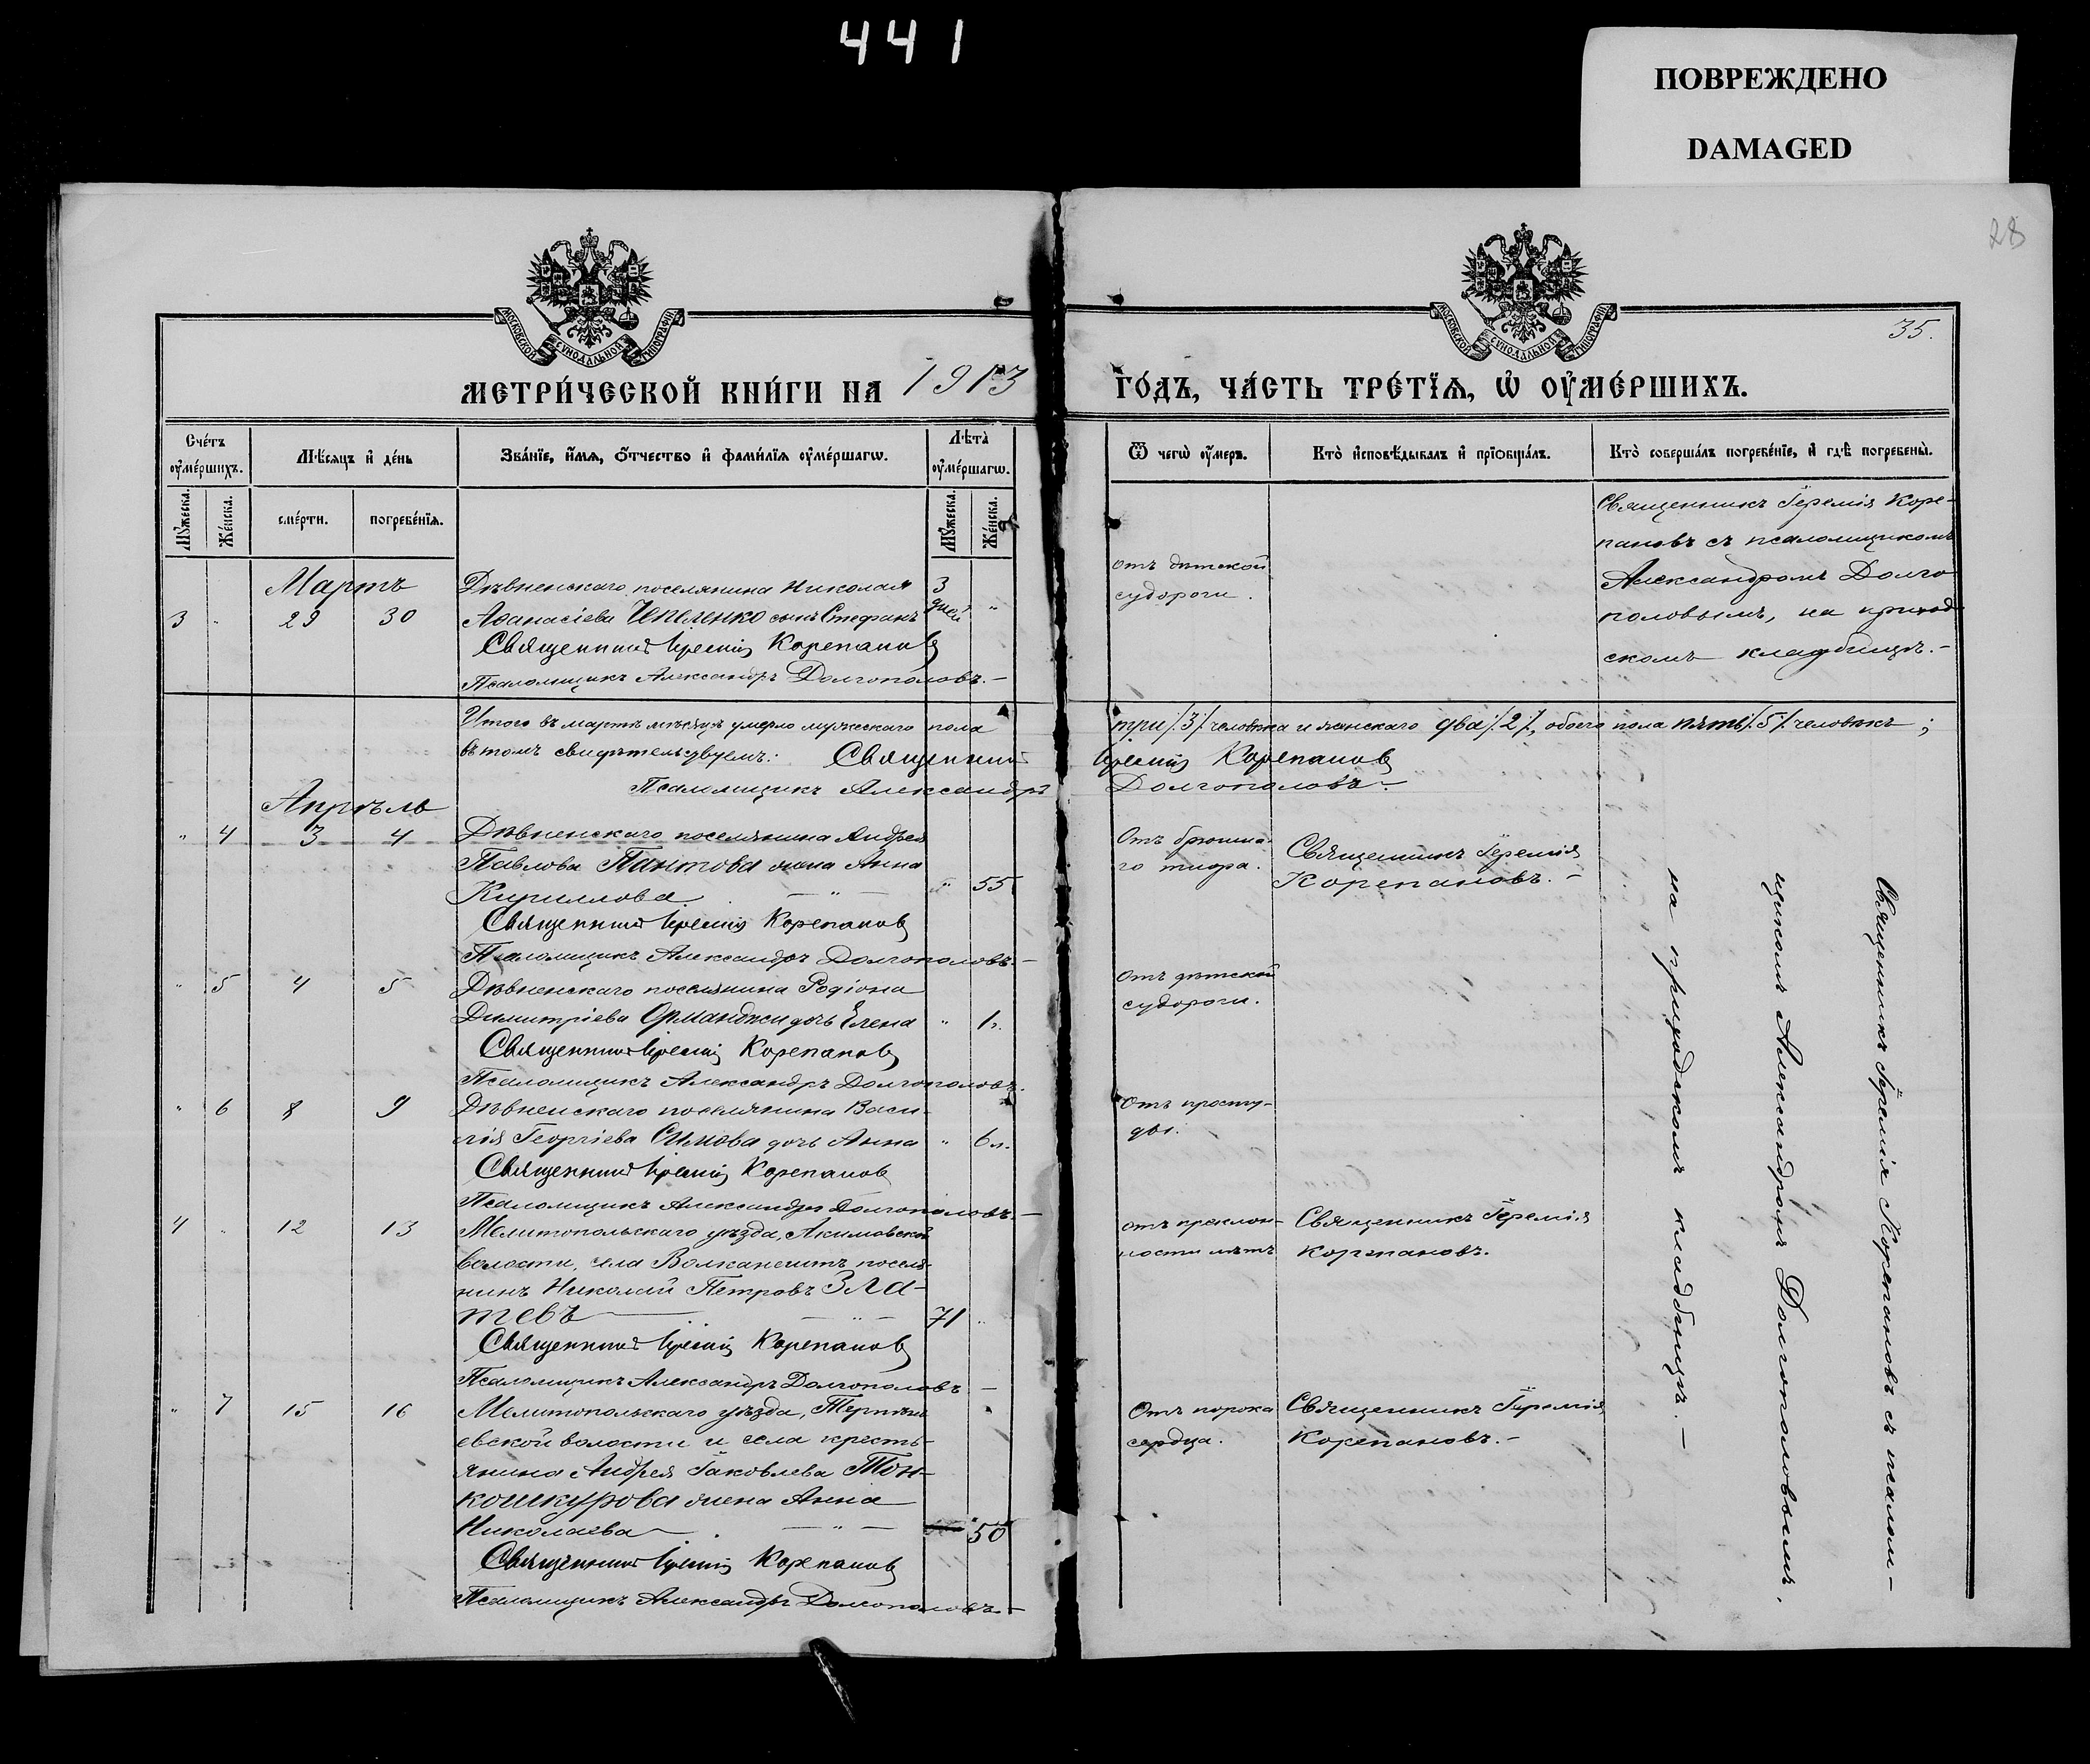 441
ПОВРЕЖДЕНО
DAMAGED
28
35.
МОСКОВСКОЙ СѴНОДАЛЬНОЙ ТИПОГРАФІИ
МОСКОВСКОЙ СѴНОДАЛЬНОЙ ТИПОГРАФІИ
МЕТРИ́ЧЕСКОЙ КНИ́ГИ НА 1913
ГО́ДЪ, ЧА́СТЬ ТРЕ́ТЇѦ, Ѡ҆ ОУ҆МЕ́РШИХЪ.
Сче́тъ оу҆ме́ршихъ.
Мꙋ́жеска.
Же́нска.
Мѣ́сѧцъ и҆ де́нь
сме́рти.
погребе́нїѧ.
Зва́нїе, и҆́мѧ, ѻ҆́тчество и҆ фами́лїѧ оу҆ме́ршагѡ.
Лѣ́та оу҆ме́ршагѡ.
Мꙋ́жеска.
Же́нска.
Ѿ чегѡ̀ оу҆́меръ.
Кто̀ и҆сповѣ́дывалъ и҆ прїѡбща́лъ.
Кто̀ соверша́лъ погребе́нїе, и҆ гдѣ̀ погребены̀.
Мартъ
3 " 29 30
Дѣвненскаго поселянина Николая
Аѳанасіева Чепеленко сынъ Стефанъ
3 дней "
Священникъ Іеремія Корепановъ
Псаломщикъ Александръ Долгополовъ.-
отъ дѣтской
судороги.
Священникъ Іеремія Коре-
пановъ съ псаломщикомъ
Александромъ Долго
половымъ, на приход
скомъ кладбищѣ.-
Итого въ мартѣ мѣсяцѣ умерло мужескаго пола три /.3/. человѣка и женскаго два /.2/., обоего пола пять /.5/. человѣкъ;
въ томъ свидѣтельствуемъ: Священникъ Іеремія Корепановъ
Псаломщикъ Александръ Долгополовъ.-
Апрѣль
" 4 3 4
Дѣвненскаго поселянина Андрея
Павлова Пантова жена Анна
Кириллова - " - " 55
Священникъ Іеремія Корепановъ
Псаломщикъ Александръ Долгополовъ.-
Отъ брюшна-
го тифа.
Священникъ Іеремія
Корепановъ.-
" 5 4 5
Дѣвненскаго поселянина Родіона
Димитріева Орманджи дочь Елена " 1г.
Священникъ Іеремія Корепановъ
Псаломщикъ Александръ Долгополовъ.
Отъ дѣтской
судороги.
" 6 8 9
Дѣвненскаго поселянина Васи-
лія Георгіева Симова дочь Анна " 6л.
Священникъ Іеремія Корепановъ
Псаломщикъ Александръ Долгополовъ.-
Отъ просту-
ды.
4 " 12 13
Мелитопольскаго уѣзда, Акимовской
волости, села Волканешть поселя-
нинъ Николай Петровъ Зла-
тевъ - " - 71 "
Священникъ Іеремія Корепановъ
Псаломщикъ Александръ Долгополовъ -
отъ преклон-
ности лѣтъ
Священникъ Іеремія
Корепановъ.
" 7 15 16
Мелитопольскаго уѣзда, Терпѣні
евской волости и села кресть-
янина Андрея Іаковлева Тон-
кошкурова жена Анна
Николаева - " - 50
Священникъ Іеремія Корепановъ
Псаломщикъ Александръ Долгополовъ.-
Отъ порока
сердца.
Священникъ Іеремія
Корепановъ.-
Священникъ Іеремія Корепановъ съ псалом-
щикомъ Александромъ Долгополовымъ,
на приходскомъ кладбищѣ.-